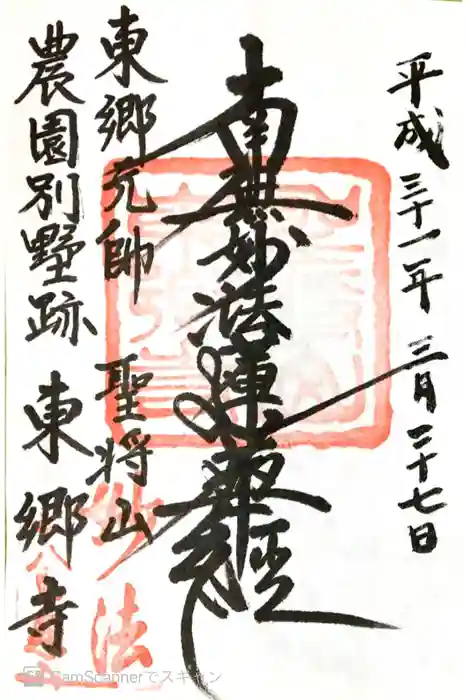 平成三十一年 三月二十七日
南無妙法蓮華経
東郷元帥 聖将山
農園別墅跡 東郷寺
妙法
CamScannerでスキャン